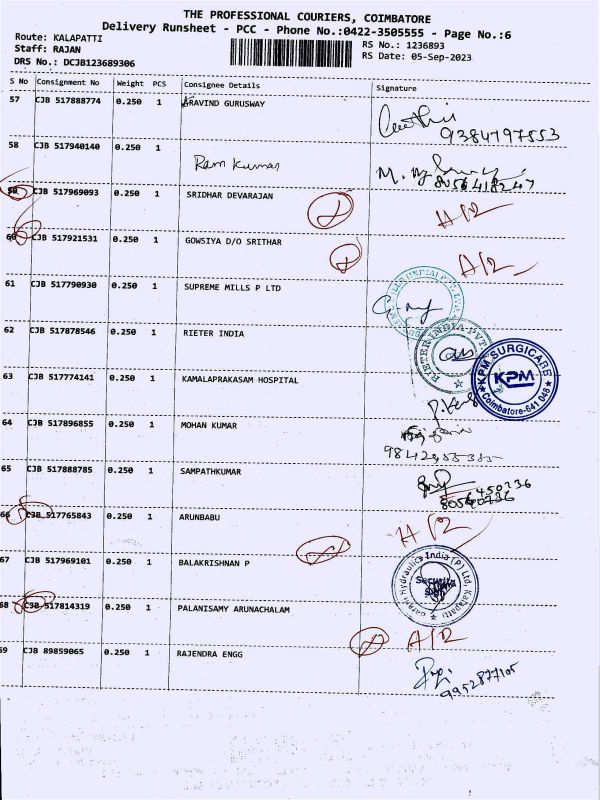 THE PROFESSIONAL COURIERS, COIMBATORE
Delivery Runsheet - PCC - Phone No.:0422-3505555 - Page No.:6
Route: KALAPATTI
Staff: RAJAN
DRS No.: DCJB123689306
RS No.: 1236893
RS Date: 05-Sep-2023
S No Consignment No Weight PCS Consignee Details Signature
57 CJB 517888774 0.250 1 ARAVIND GURUSWAY
9384797553
58 CJB 517940140 0.250 1 Ram Kumar
8056418247
59 CJB 517969093 0.250 1 SRIDHAR DEVARAJAN
60 CJB 517921531 0.250 1 GOWSIYA D/O SRITHAR
61 CJB 517790930 0.250 1 SUPREME MILLS P LTD
62 CJB 517878546 0.250 1 RIETER INDIA
RIETER INDIA PVT
63 CJB 517774141 0.250 1 KAMALAPRAKASAM HOSPITAL
KPM SURGICARE
KPM
Coimbatore-641 048
64 CJB 517896855 0.250 1 MOHAN KUMAR
65 CJB 517888785 0.250 1 SAMPATHKUMAR
66 CJB 517765843 0.250 1 ARUNBABU
67 CJB 517969101 0.250 1 BALAKRISHNAN P
Hydraulics India (P) Ltd, Kalapatti
Security
68 CJB 517814319 0.250 1 PALANISAMY ARUNACHALAM
69 CJB 89859065 0.250 1 RAJENDRA ENGG
9952877105